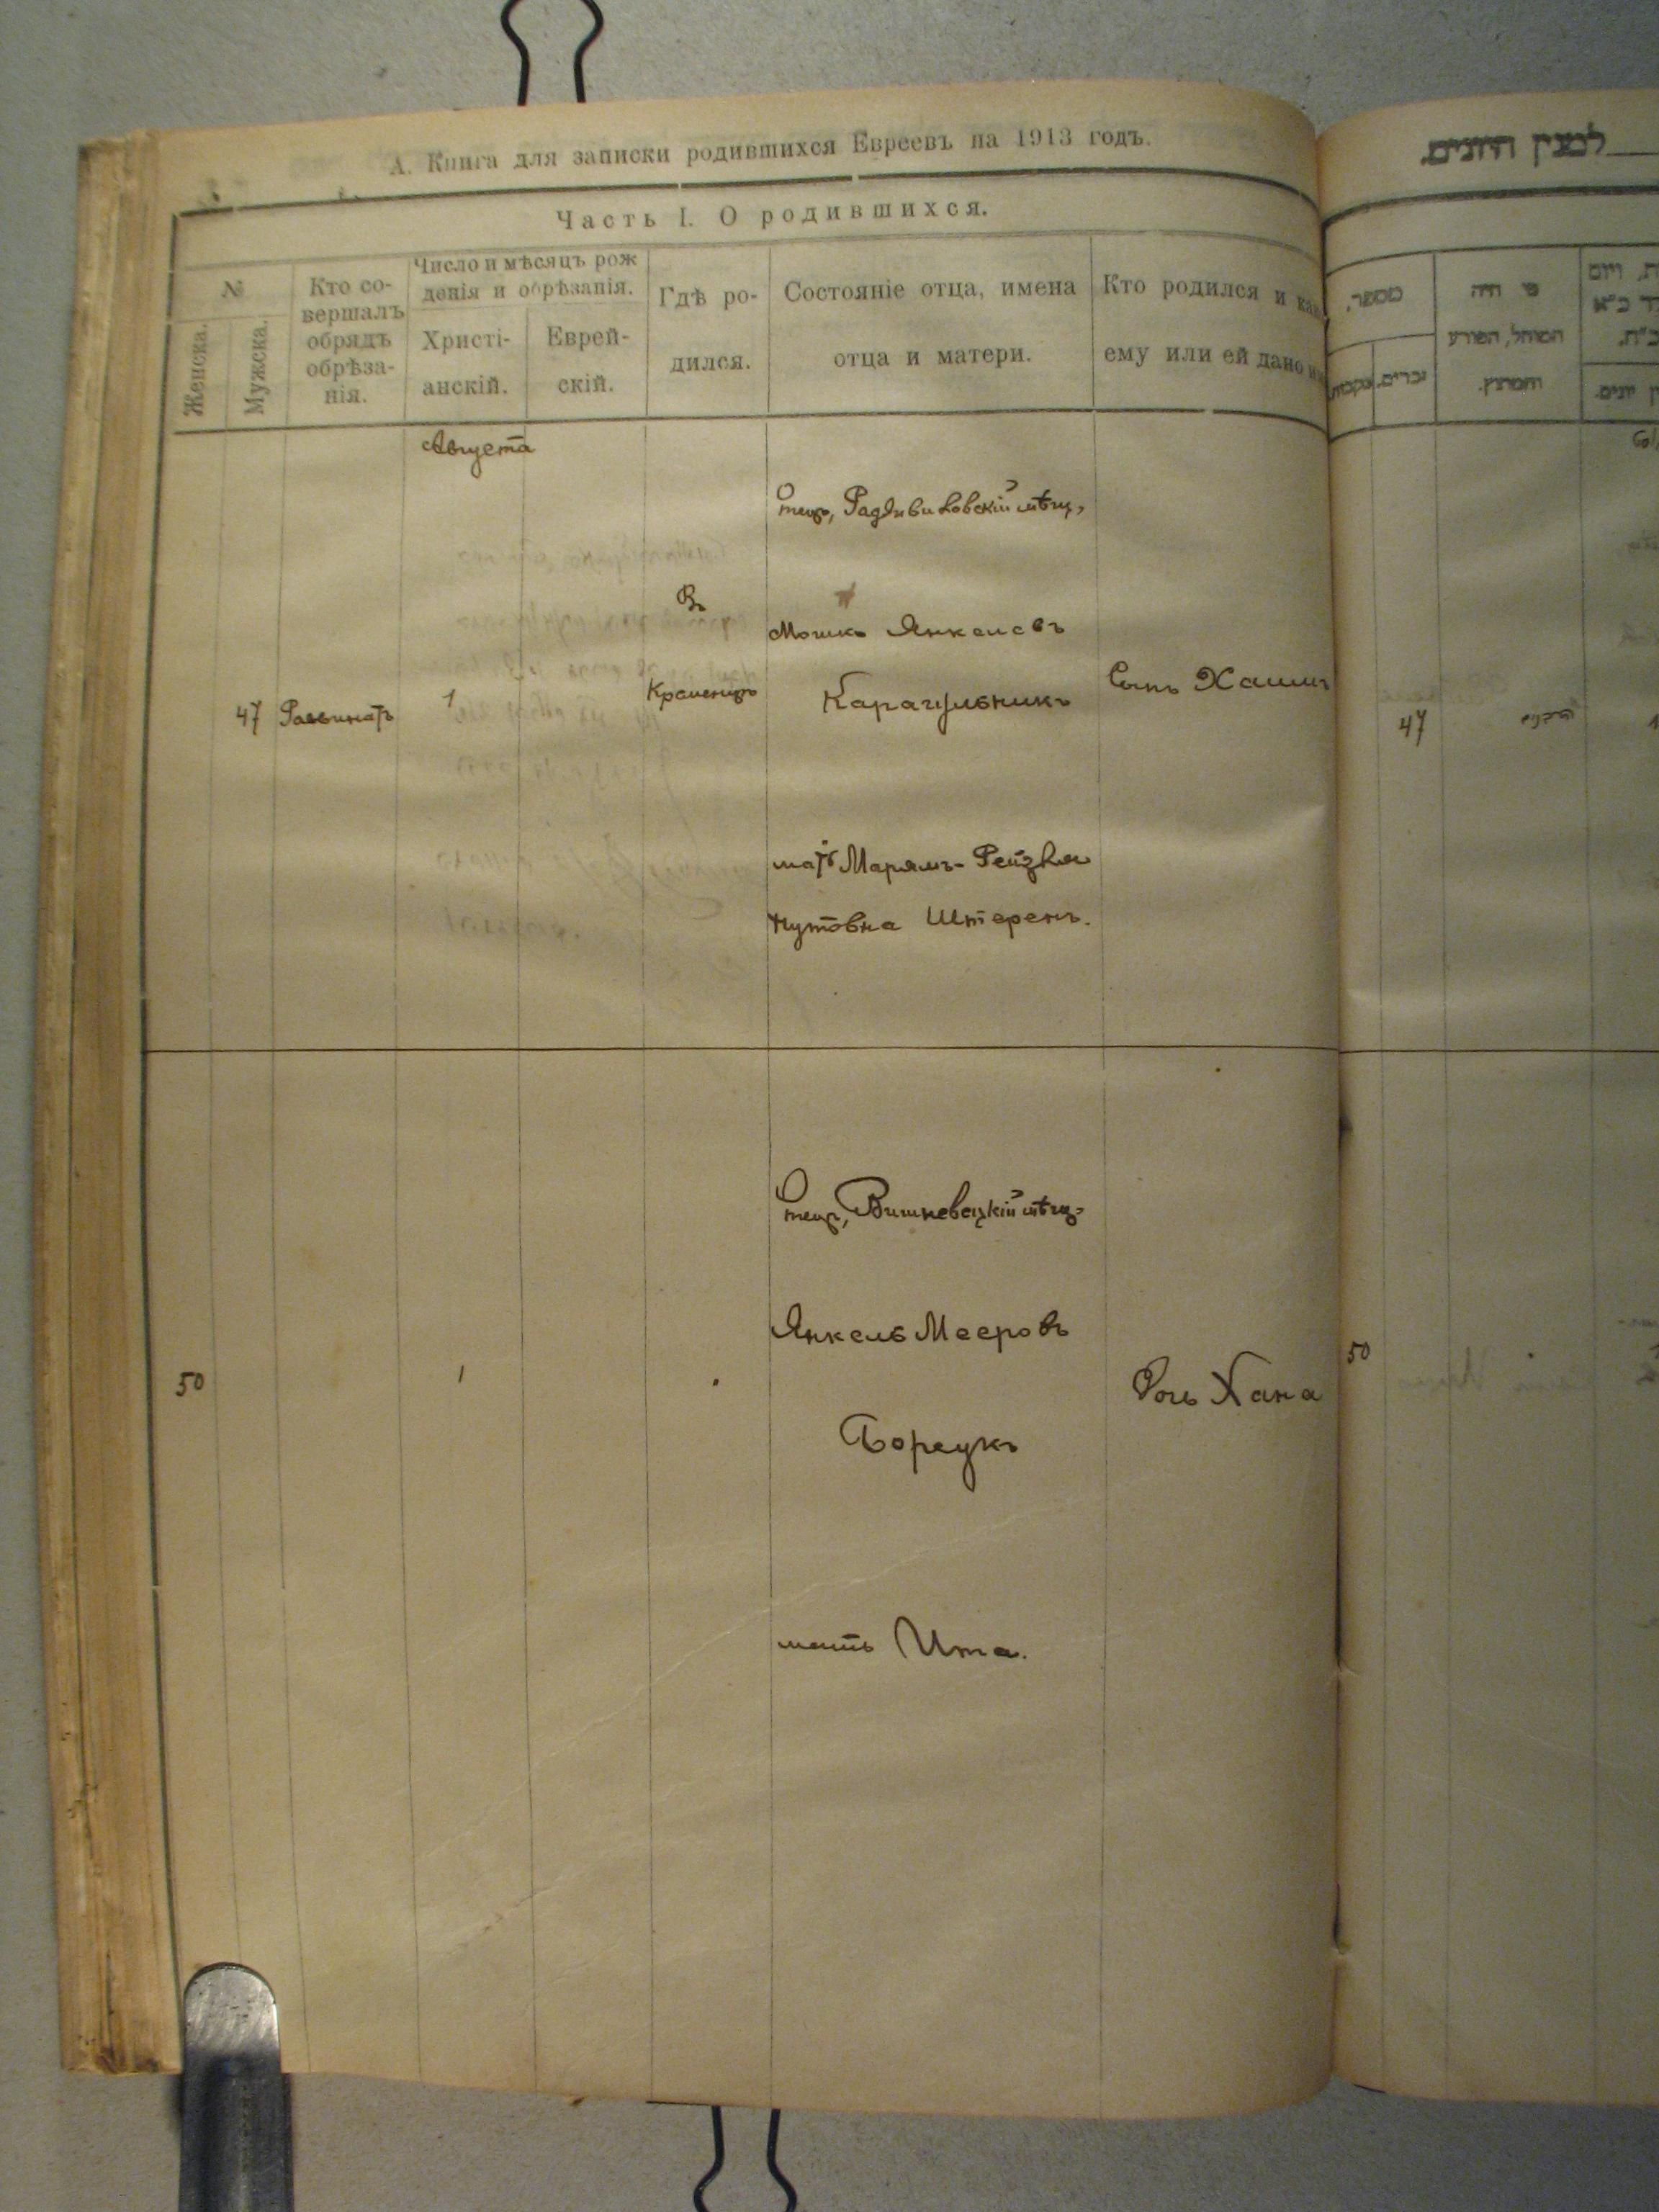 А. Книга для записки родившихся Евреевъ на 1913 годъ.
Часть I. О родившихся.
№
Женска.
Мужска.
Кто со-
вершалъ
обрядъ
обрѣза-
нія.
Число и мѣсяцъ рож
денія и обрѣзанія.
Христі-
анскій.
Еврей-
скій.
Гдѣ ро-
дился.
Состояніе отца, имена
отца и матери.
Кто родился и как
ему или ей дано
Августа
47
Раввинатъ
1
Въ
Кременцѣ
Отецъ, Радзивиловскій мѣщ,
Мошко Янкелевъ
мать Марямъ-Рейзля
Нутовна Штеренъ.
Сынъ Хаимъ
50
1
Отецъ, Вишневецкій мѣщ-
Янкель Мееровъ
мать Ита.
Дочь Хана
למנין היונים.
מספר.
זכרים.
נקבות
מי היה
המוהל, הפורע
והמוצץ.
47
50